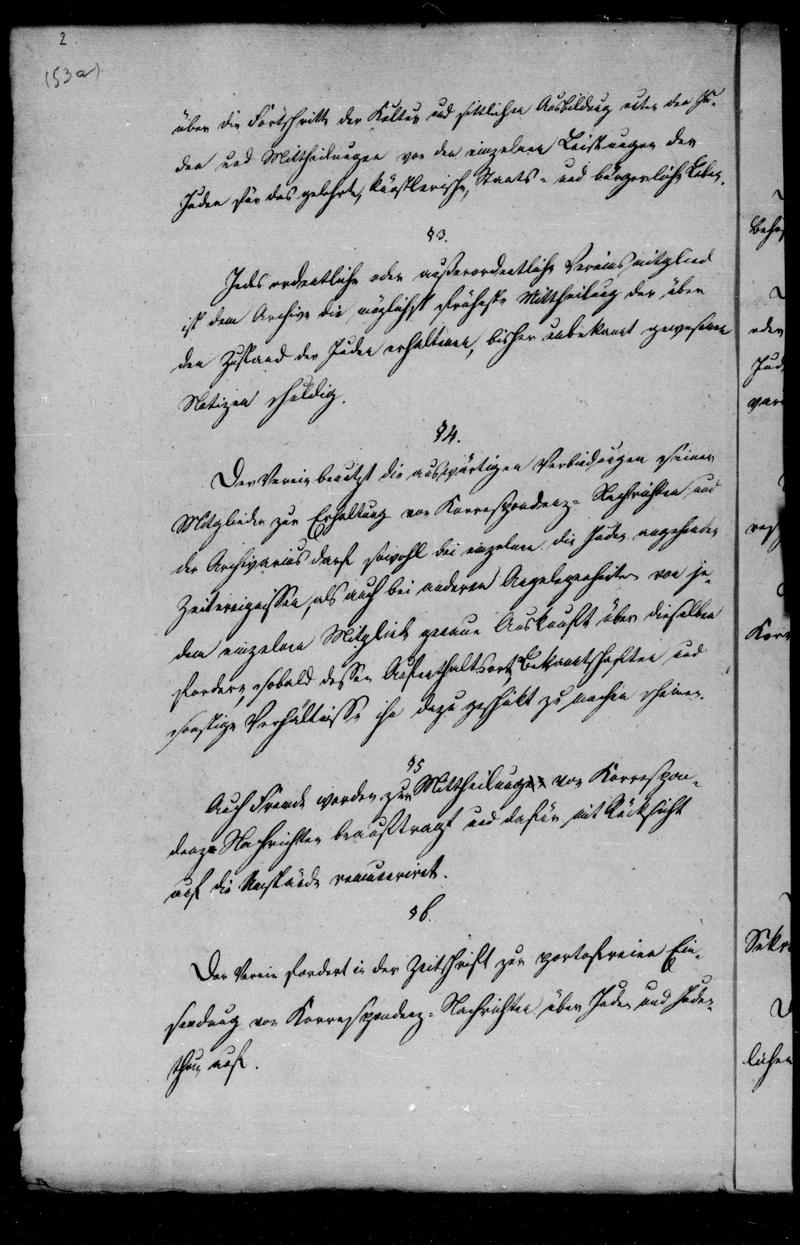 2
(53a)
über die Fortschritte der Kultur und sittlichen Ausbildung unter den Ju-
den und Mittheilungen von den einzelnen Leistungen der
Juden für das gelehrte, künstlerische, Staats- und bürgerliche Leben.
§3.
Jedes ordentliche oder außerordentliche Vereinsmitglied
ist dem Archive die möglichst früheste Mittheilung der über
den Zustand der Juden erhaltenen, bisher unbekannt gewesenen
Notizen schuldig.
§4.
Der Verein benutzt die auswärtigen Verbindungen seiner
Mitglieder zur Erhaltung von Korrespondenz-Nachrichten und
der Archivarius darf sowohl bei einzelnen die Juden angehenden
Zeitereignissen, als auch bei anderen Angelegenheiten von je-
dem einzelnen Mitgliede genaue Auskunft über dieselben
fordern, sobald dessen Aufenthaltsort, Bekanntschaften und
sonstige Verhältnisse ihn dazu geschikt zu machen scheinen.
§5
Auch Fremde werden zur Mittheilung von Korrespon-
denz-Nachrichten beauftragt und dafür mit Rücksicht
auf die Umstände remunerirt.
§6.
Der Verein fordert in der Zeitschrift zur portofreien Ein-
sendung von Korrespondenz-Nachrichten über Juden und Juden-
thum auf.
oder
Jud
Korr
Sekr
lichen